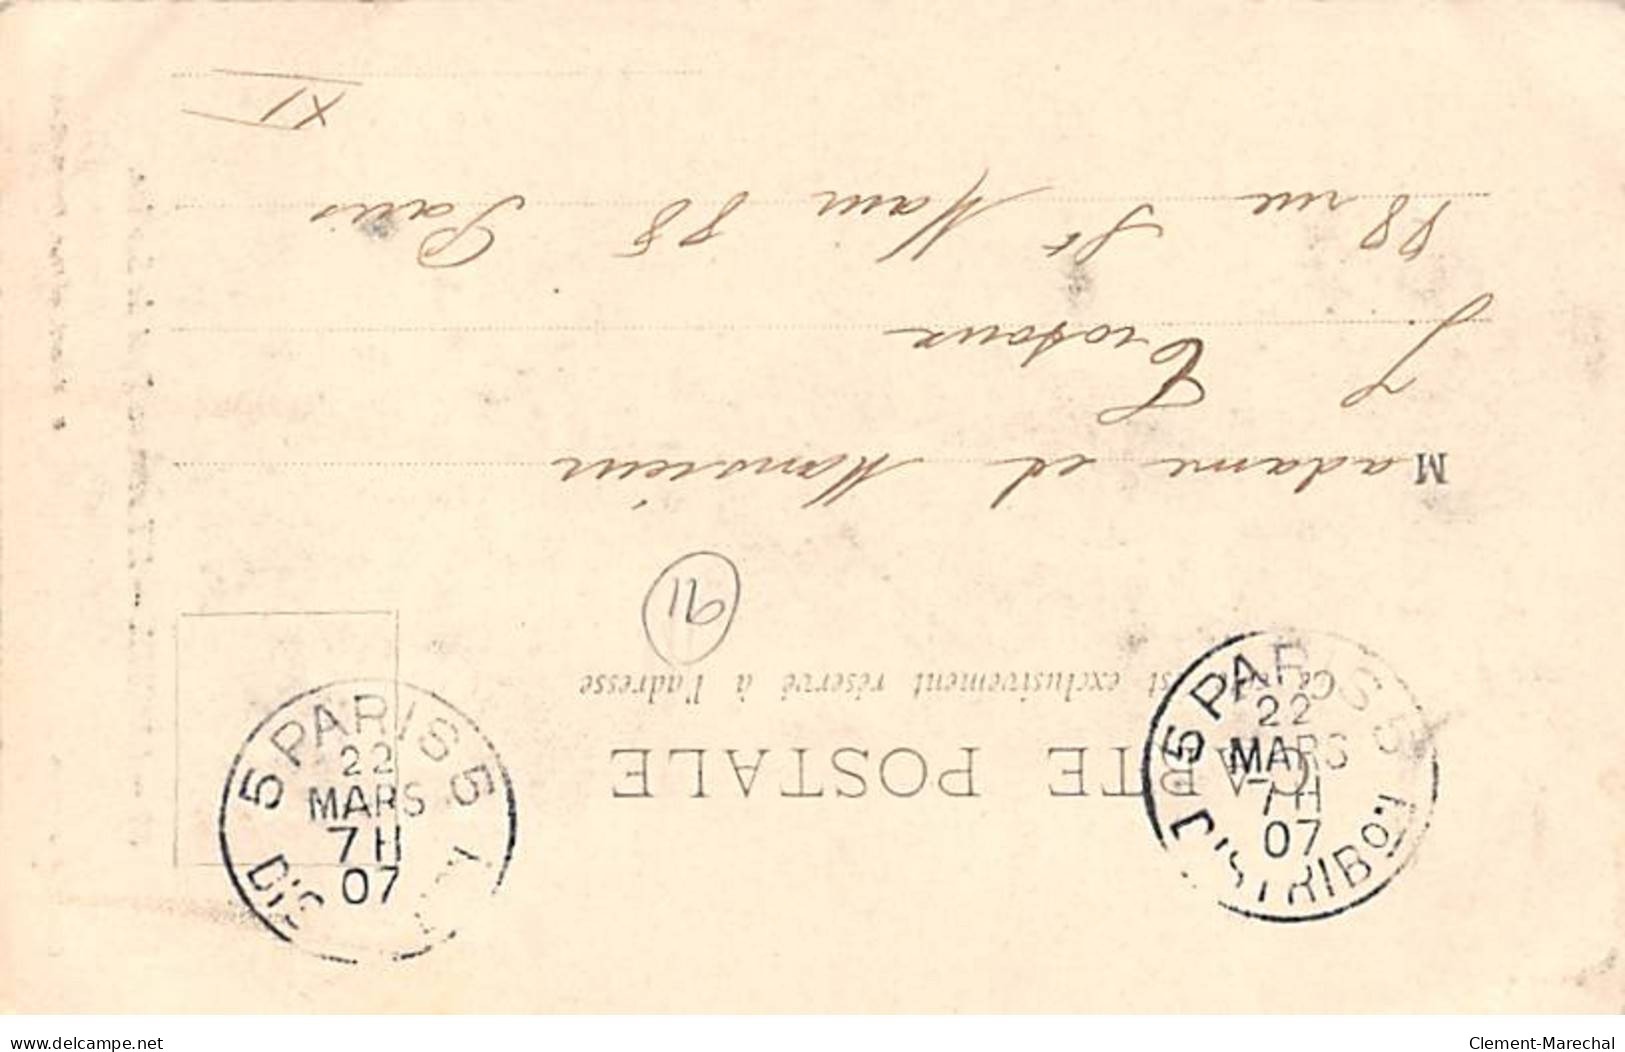 CARTE POSTALE
Ce côté est exclusivement réservé à l'adresse
91
Madame et Monsieur
J.
88 rue St Maur 88 Paris
XI
5 PARIS 5
22
MARS
7H
07
DISTRIBON
5 PARIS 5
22
MARS
7H
07
DIS
www.delcampe.net
Clement-Marechal